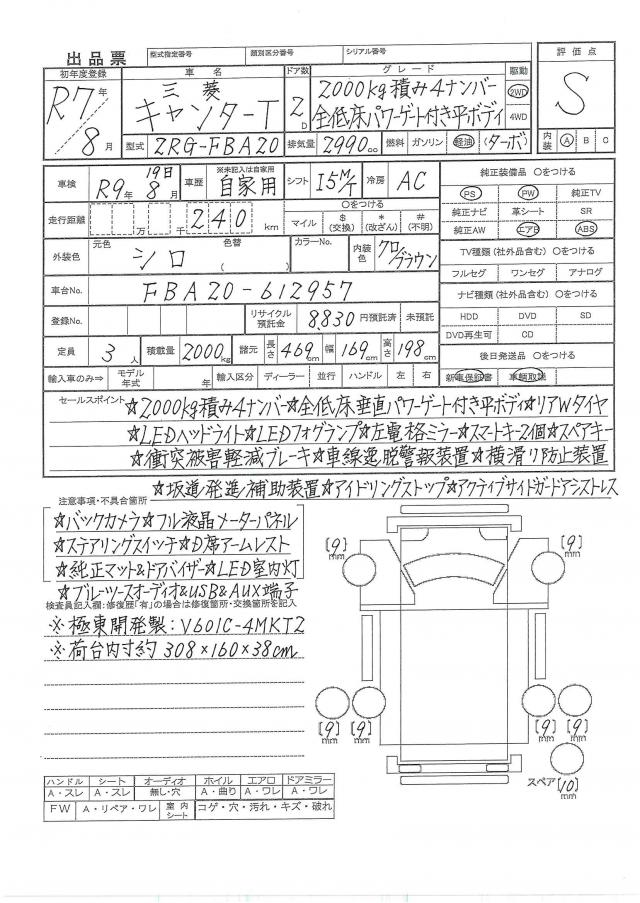 出品票 型式指定番号 類別区分番号 シリアル番号
初年度登録 車名 ドア数 グレード 駆動 評価点
R7年 8月 三菱 キャンターT 2D 2000kg積み4ナンバー 全低床パワーゲート付き平ボディ 2WD 4WD S
型式 2RG-FBA20 排気量 2990cc 燃料 ガソリン 軽油 (ターボ) 内装 A B C
車検 R9年 8月 19日 車歴 ※未記入は自家用 自家用 シフト I5M/T 冷房 AC
純正装備品 〇をつける
PS PW 純正TV
純正ナビ 革シート SR
純正AW エアB ABS
走行距離 万 千 240 km 〇をつける マイル $(交換) *(改ざん) #(不明)
外装色 元色 シロ 色替 ( ) カラーNo. 内装色 クロ/ブラウン
TV種類(社外品含む) 〇をつける
フルセグ ワンセグ アナログ
車台No. FBA20-612957
ナビ種類(社外品含む) 〇をつける
HDD DVD SD
DVD再生可 CD
登録No. リサイクル預託金 8,830 円預託済 未預託
定員 3人 積載量 2000kg 諸元 長さ 469cm 幅 169cm 高さ 198cm
後日発送品 〇をつける
新車保証書 車輌取説
輸入車のみ⇒ モデル年式 年 輸入区分 ディーラー 並行 ハンドル 左 右
セールスポイント ☆2,000kg積み4ナンバー☆全低床垂直パワーゲート付き平ボディ☆リアWタイヤ
☆LEDヘッドライト☆LEDフォグランプ☆左電格ミラー☆スマートキー2個☆スペアキー
☆衝突被害軽減ブレーキ☆車線逸脱警報装置☆横滑り防止装置
☆坂道発進補助装置☆アイドリングストップ☆アクティブサイドガードアシストレス
注意事項・不具合箇所
☆バックカメラ☆フル液晶メーターパネル
☆ステアリングスイッチ☆D席アームレスト
☆純正マット&ドアバイザー☆LED室内灯
☆ブルーツースオーディオ&USB&AUX端子
検査員記入欄:修復歴「有」の場合は修復箇所・交換箇所を記入
※極東開発製:V601C-4MKT2
※荷台内寸約 308×160×38cm
[9]mm [9]mm
[9]mm [9]mm [9]mm [9]mm
スペア [10]mm
ハンドル シート オーディオ ホイル エアロ ドアミラー
A・スレ A・スレ 無し・穴 A・曲り A・ワレ A・ワレ
FW A・リペア・ワレ 室内シート コゲ・穴・汚れ・キズ・破れ